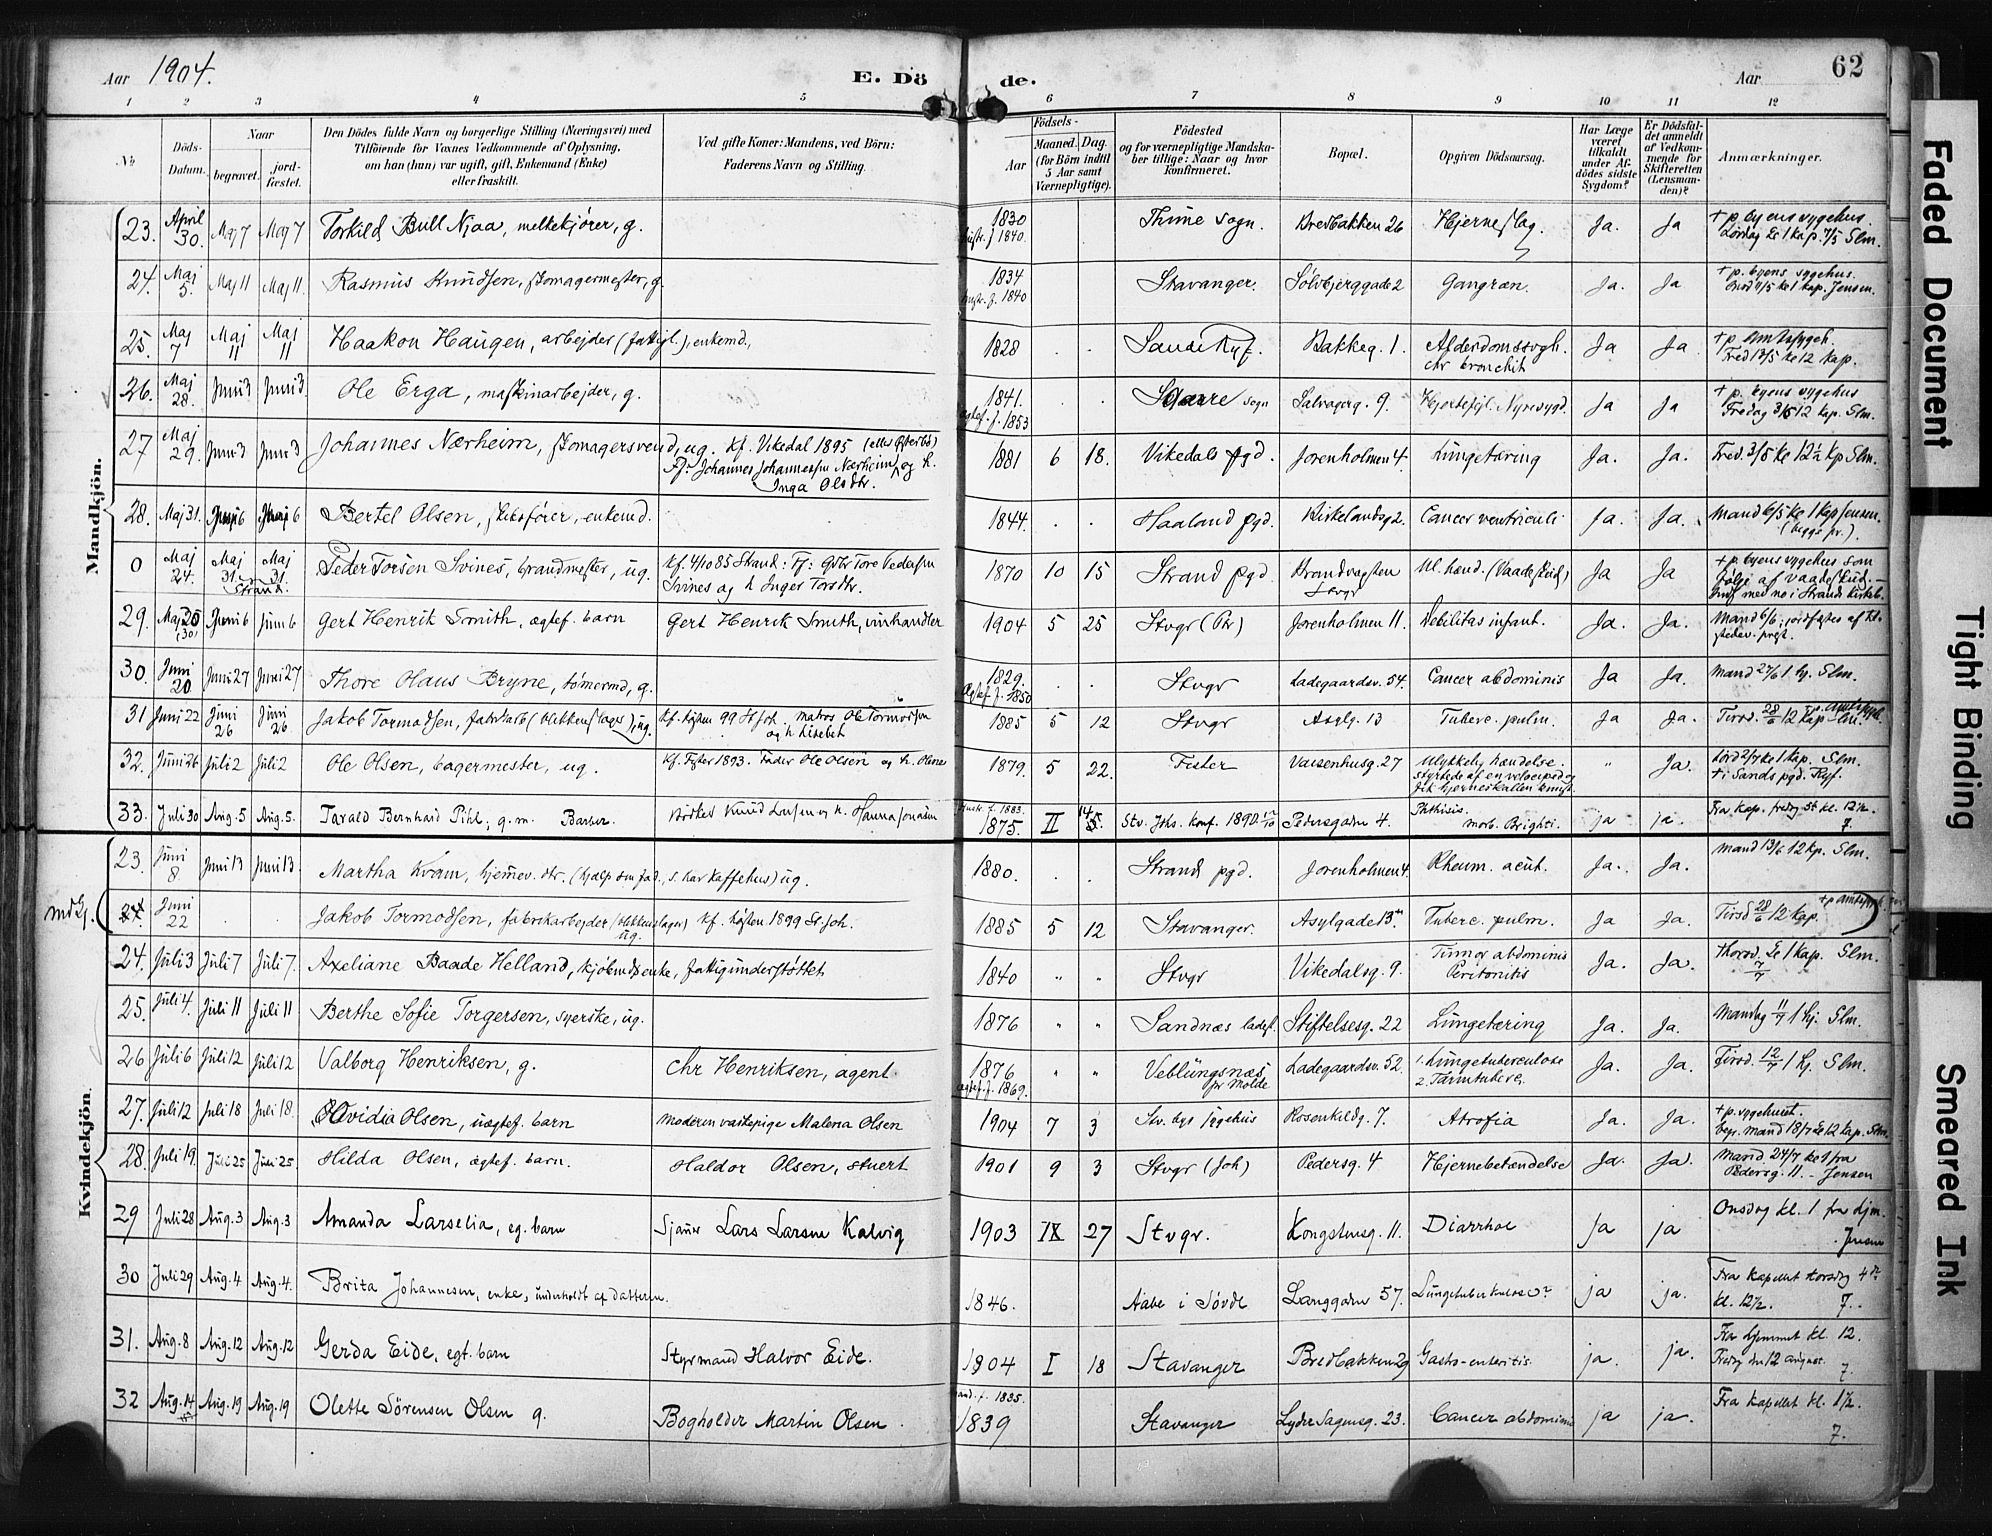 Aar 1904. E. Dö de. Aar 62
1 2 3 4 5 6 7 8 9 10 11 12
No. Döds-Datum. Naar begravet. jord-fæstet. Den Dödes fulde Navn og borgerlige Stilling (Næringsvei) med Tilföiende for Voxnes Vedkommende af Oplysning, om han (hun) var ugift, gift, Enkemand (Enke) eller fraskilt. Ved gifte Koner: Mandens, ved Börn: Faderens Navn og Stilling. Födsels- Aar Maaned. Dag. (for Börn indtil 5 Aar samt Værnepligtige). Födested og for værnepligtige Mandskaber tillige: Naar og hvor konfirmeret. Bopæl. Opgiven Dödsaarsag. Har Læge været tilkaldt under Afdödes sidste Sygdom? Er Dödsfaldet anmeldt af Vedkommende for Skifteretten (Lensmanden)? Anmærkninger.
Mandkjön.
23. April 30. Maj 7 Maj 7 Torkild Bull Njaa, melkekjører, g. 1830 hustr. f. 1840. . . Thime sogn. Bredbakken 26 Hjerneslag. Ja. Ja + p. byens sygehus. Lørdag kl 1 kap. 7/5 Slm.
24. Maj 5. Maj 11 Maj 11. Rasmus Knudsen, skomagermester, g. 1834 hustr. f. 1840 Stavanger. Sølvbjerggade 2 Gangræn. Ja. Ja + p. byens sygehus. Onsd 11/5 kl 1 kap. Jensen.
25. Maj 7 Maj 11 Maj 11 Haakon Haugen, arbejder (fattigl.), enkemd., 1828 . . Bakkeg. 1. Alderdomssvagh. chr bronchit Ja Ja + p. Amtssygeh. Fred 13/5 kl 12 kap.
26. Maj 28. Juni 3 Juni 3 Ole Erga, maskinarbejder, g. 1841. ægtef. f. 1853 . . sogn Salvagerg. 9. Hjertefejl. Nyresygd. Ja Ja + p. byens sygehus Fredag 3/6 12 kap. Slm.
27 Maj 29. Juni 3 Juni 3 Johannes Nærheim, skomagersvend, ug. Kf. Vikedal 1895 F: Johannes Johannessen Nærheim og h. Inga Olsdtr. 1881 6 18. Vikedals pgd. Jorenholmen 4. Lungetæring Ja. Ja. Fred. 3/5 kl 12 1/2 kp Slm.
28. Maj 31. Juni 6 Juni 6 Bertel Olsen, skibsfører, enkemd. 1844. . . Haaland pgd. Birkelandsg 2. Cancer ventriculi Ja. Ja. Mand 6/5 kl 1 kap Jensen. (begge pr.).
0 Maj 24. Maj 31. Maj 31. Strand. Peder Torsen Svines, brandmester, ug. Kf. 4/10 85 Strand: F: Gbr Tore Pedersen Svines og h Inger Torsdtr. 1870 10 15 Strand pgd. Brandvagten Stvgr Ul. hænd. (Vaadeskud) Ja Ja + p byens sygehus som følge af vaadeskud.
29. Maj 25 (30) Juni 6 Juni 6 Gert Henrik Smith, ægtef. barn Gert Henrik Smith, vinhandler 1904 5 25 Stvgr (Ptr) Jorenholmen 11. Debilitas infant. Ja. Ja. Mand 6/6, jordfæstes af kl. stedev. prest.
30. Juni 20 Juni 27 Juni 27 Thore Olaus Bryne, tømermd, g. 1829. Ægtef. f. 1850 . . Stvgr Ladegaardsv. 54. Cancer abdominis Ja Ja Mand 27/6 1 hj. Slm.
31 Juni 22 Juni 26 Juni 26 Jakob Tormodsen, fabrikarb (blikkenslager), ug. Kf. høsten 99 St Joh. matros Ole Tormodsen og h. Lisebet 1885 5 12 Stvgr Asylg. 13 Tuberc. pulm. Ja Ja. Tirsd. 28/6 12 kap p. Amtssygeh. Slm.
32. Juni 26 Juli 2 Juli 2 Ole Olsen, bagermester, ug. Kf. Fister 1893. Fader Ole Olsen og h. Oline 1879. 5 22. Fister Vaisenhusg. 27 Ulykkelig hændelse. styrtede af en velociped og fik hjerneskallen knust. " Ja. Lørd 2/7 kl 1 kap. Slm. + i Sands pgd. Ryf.
33. Juli 30 Aug. 5 Aug. 5. Tarald Bernhard Pihl, g. m. Barber. hustr. f. 1883. 1875. II 14 Stv. Johs. konf. 1890 Pedersgaden 4. Phthisis. morb. Brighti. ja ja. Fra kap. fredag 5t kl. 12 1/2. 7.
Kvindekjön.
23. Juni 8 Juni 13 Juni 13 Martha Kvam, hjemev. dtr. (hjælp om fad., s. har kaffehus) ug. 1880. . . Strand pgd. Jorenholmen 4. Rheum. acut. Ja. Ja. Mand 13/6 12 kp. Slm.
24. Juni 22 . . Jakob Tormodsen, fabrikarbejder (blikkenslager) ug. Kf. høsten 1899 St. Joh. 1885 5 12 Stavanger. Asylgade 13 Tuberc. pulm. Ja Ja. Tirsd 28/6 12 kap. + p amtssygeh.
24. Juli 3 Juli 7 Juli 7. Axeliane Baade Helland, kjøbmdsenke, fattigunderstøttet. 1840 " " Stvgr Vikedalsg. 9. Tumor abdominis Peritonitis Ja. Ja. Thorsd. kl 1 kap. Slm. 7/7
25. Juli 4. Juli 11 Juli 11 Berthe Sofie Torgersen, syerske, ug. 1876 " " Sandnæs ladest. Stiftelsesg. 22 Lungetæring Ja. Ja. Mandag 11/7 1 hj. Slm.
26 Juli 6 Juli 12 Juli 12 Valborg Henriksen, g. Chr Henriksen, agent 1876 ægtef. f. 1869. " " Veblungsnæs pr Molde Ladegaardsv. 52. 1. Lungetuberculose 2. Tarmtuberc. Ja. Ja. Tirsd. 12/7 1 hj. Slm.
27. Juli 12 Juli 18 Juli 18. Ovidia Olsen, uægtef. barn Moderen vaskepige Malena Olsen 1904 7 3 Stv. bys sygehus Rosenkildg. 7. Atrofia Ja. Ja. + p. sygehuset. begr. mand 18/7 kl 12 kap. Slm.
28. Juli 19. Juli 25 Juli 25. Hilda Olsen, ægtef. barn. Haldor Olsen, stuert 1901 9 3 Stvgr (Joh) Pedersg. 4 Hjernebetændelse Ja. Ja. Mand 24/7 kl 1 fra Pedersg. 11. - Jensen
29 Juli 28 Aug. 3 Aug. 3 Amanda Larselia, eg. barn Sjauer Lars Larsen Kalvig 1903 IX 27 Stvgr. Kongstensg. 11. Diarrhoe Ja ja Onsdag kl. 1 fra hjm. Jensen
30 Juli 29 Aug. 4 Aug. 4. Brita Johannesen, enke, underholdt af datteren. 1846. Aabø i Søvde Langgaden 57. Lungetuberkulose? ja ja. Fra kapellet torsdag 4de kl. 12 1/2. 7.
31. Aug. 8 Aug. 12 Aug. 12 Gerda Eide, egt. barn Styrmand Halvor Eide. 1904 I 18 Stavanger Bredbakken 29 Gastro-enteritis ja. ja. Fra hjemmet kl. 12. Fredag den 12 august. 7.
32 Aug. 14 Aug. 19 Aug. 19 Olette Sörensen Olsen g. Bogholder Martin Olsen. Mand. f. 1835. 1839 Stavanger Lyder Sagensg. 23. Cancer abdominis ja ja. Fra kapellet kl. 1 1/2. 7.
Faded Document
Tight Binding
Smeared Ink